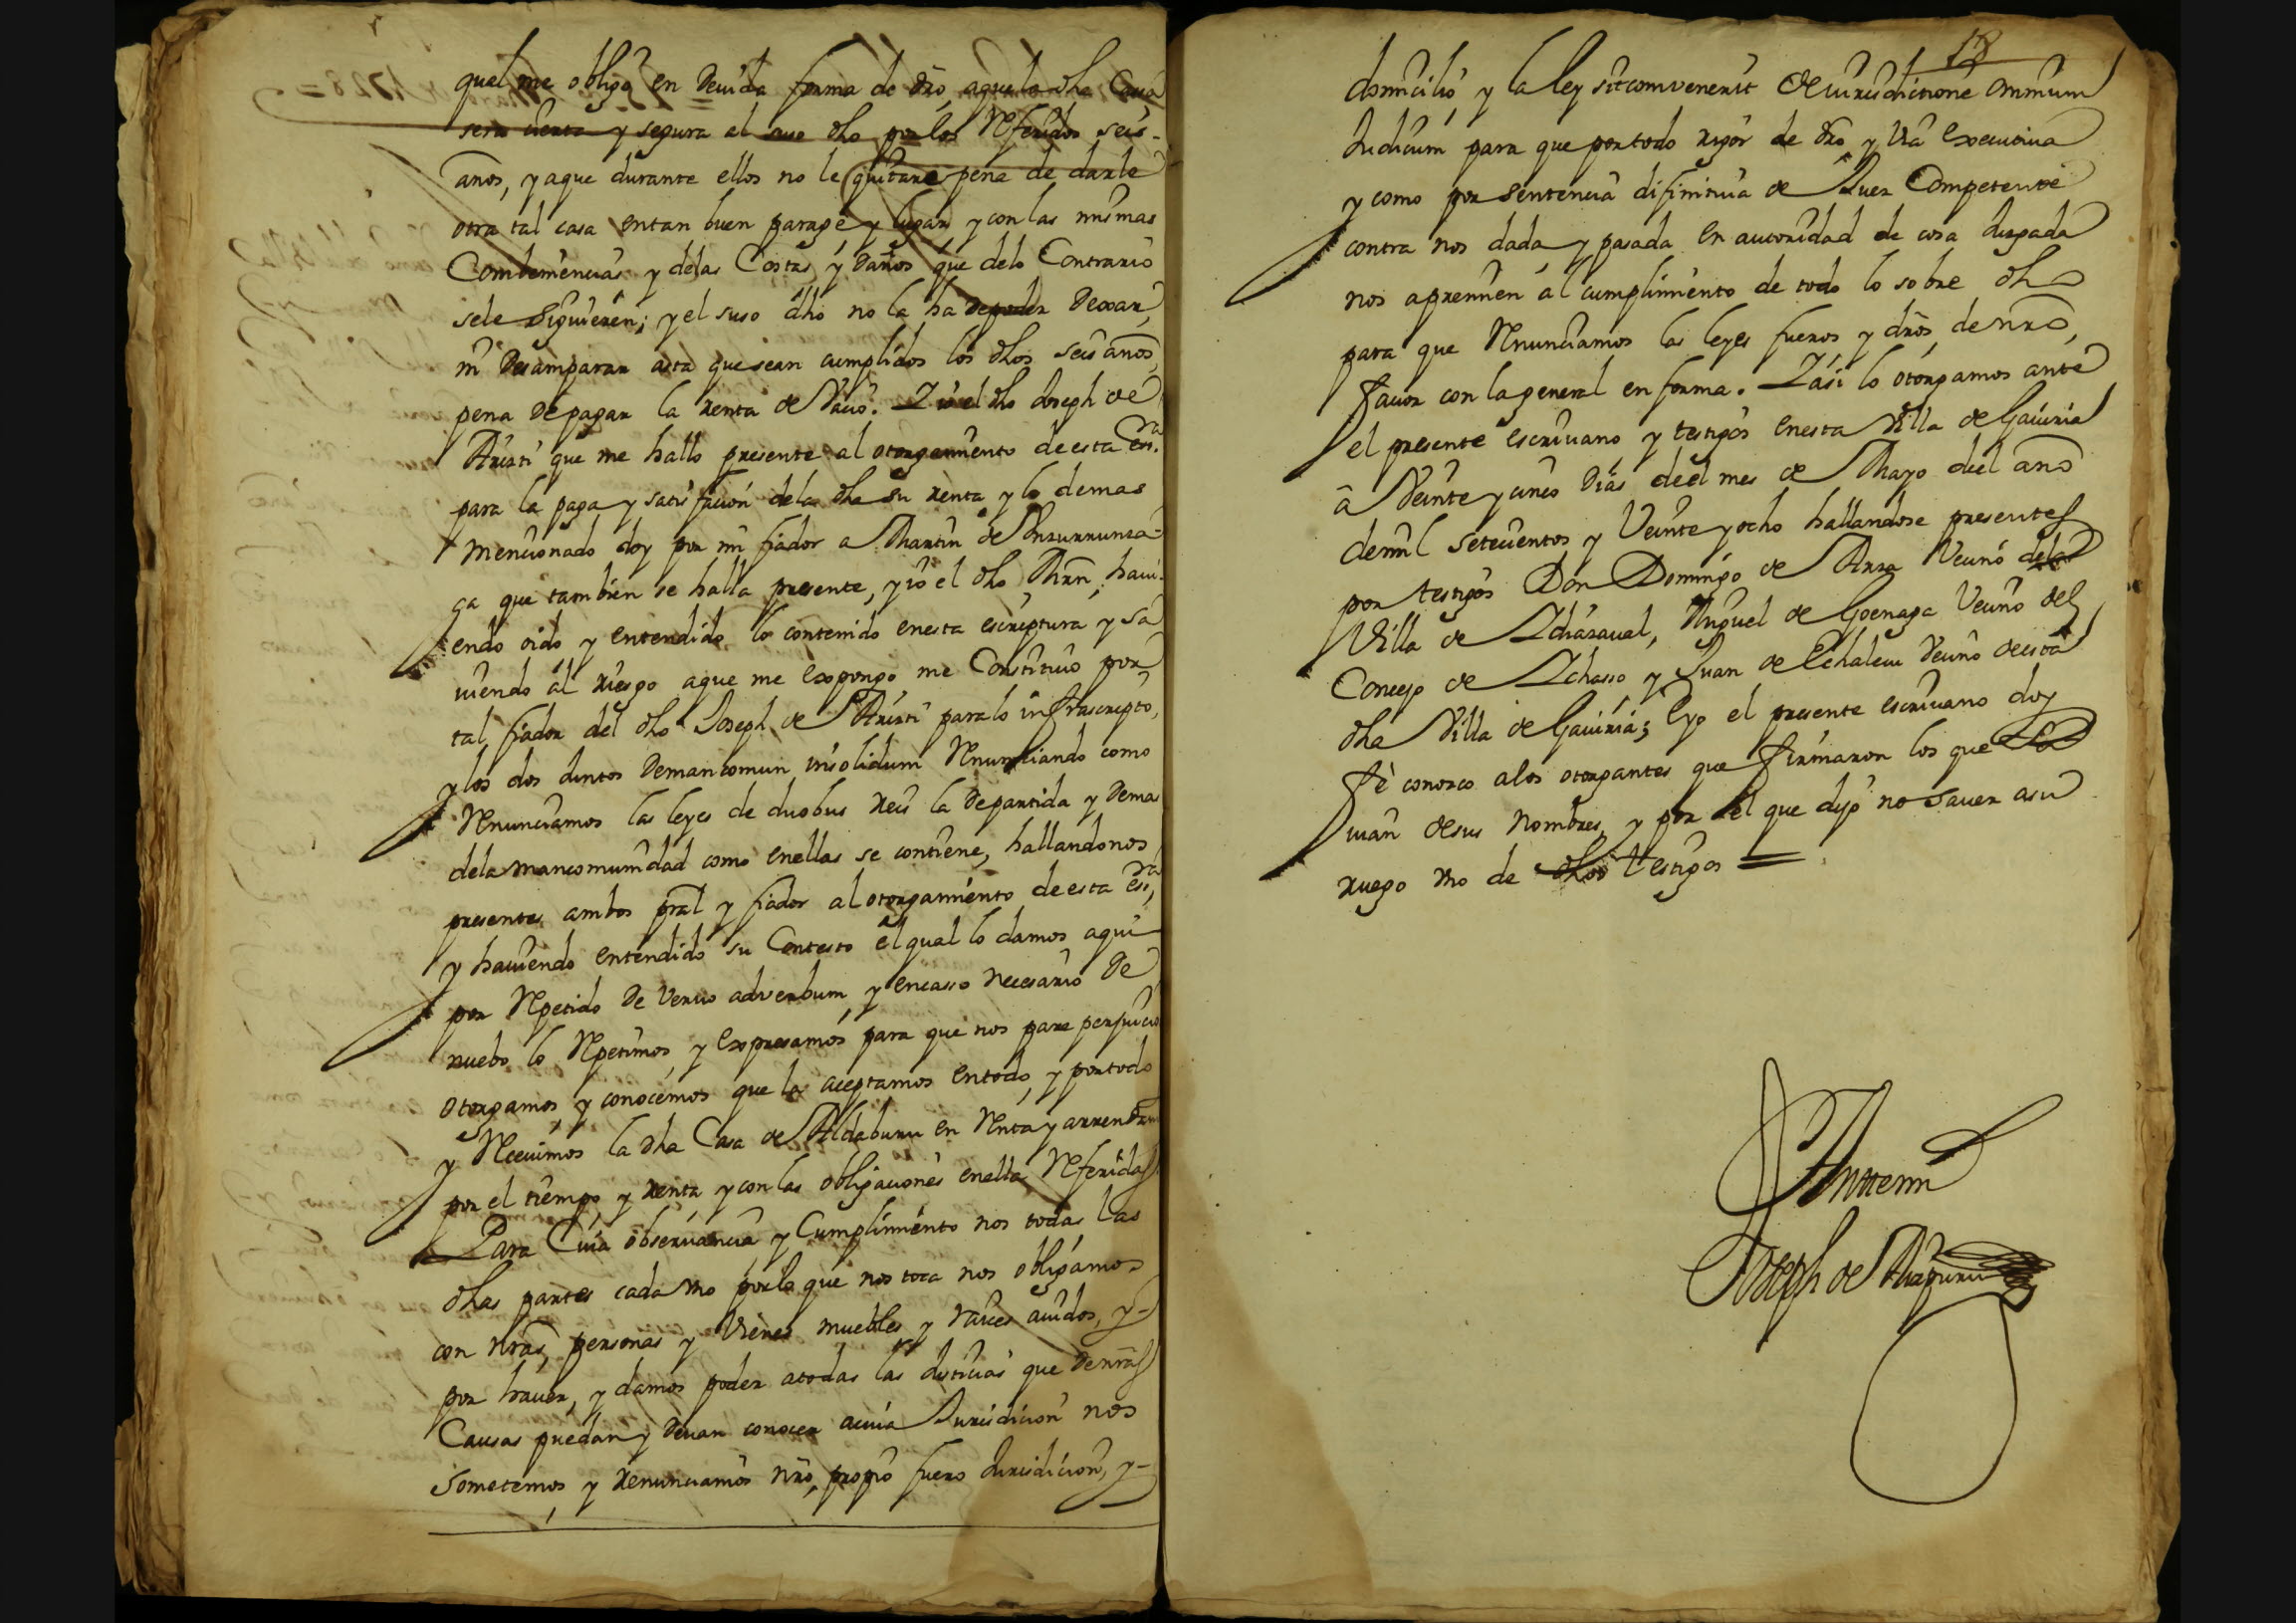 quel me obligo en Devida forma de dro, aque la dha Cassa
sera cierta y segura al suso dho por los Referidos seis
años, y aque durante ellos no le quitare pena de darle
otra tal casa entan buen parage y lugar y con las mismas
Combeniencias y delas Costas, y Daños que delo Contrario
sele siguieren; y el suso dho no la ha depoder Dexar,
ni Desamparar asta que sean cumplidos los dhos seis años,
pena de pagar la renta de Vacio. Y io el dho Joseph de
Aristi que me hallo presente al otorgamiento de esta esra
para la paga y satisfacion dela dha su renta y lo demas
mencionado doy por mi fiador a Martin de
ga que tambien se halla presente, y io el dho Mrn, havi-
endo oido y entendido lo contenido enesta escriptura y sa
viendo al riesgo aque me expongo me Constituio por
tal fiador del dho Joseph de Aristi para lo infrascripto,
y los dos juntos Demancomun insolidum Renunciando como
Renunciamos las leyes de duobus reis la Departida y Demas
dela mancomunidad como enellas se contiene, hallandonos
presentes ambos pral y fiador al otorgamiento de esta esra,
y haviendo entendido su Contesto el qual lo damos aqui
por Repetido De Vervo adverbum, y encasso necesario De
nuebo lo Repetimos, y Expresamos para que nos pare perjuicio
otorgamos, y conocemos que la aceptamos entodo, y portodo
y Recivimos la dha Casa de Aldaburu en Renta y arrendamto
por el tiempo, y renta, y con las obligaciones enella Referidas
Para Cuia observancia y Cumplimiento nos todas las
dhas partes cada uno porlo que nos toca nos obligamos
con nras, personas y Vienes muebles y raices avidos, y
por haver, y damos poder atodas las Justicias que de nras
Causas puedan y Devan conocer acuia Jurisdicion nos
sometemos y renunciamos nro, propio fuero Jurisdicion, y
18
domicilio y la ley sitcomvenerit de iurisdictione omnium
Judicum para que portodo rigor de dro y Via Executiva
y como por sentencia difinitiva de Juez Competente
contra nos dada y pasada en autoridad de cosa Juzgada
nos apremien al cumplimiento de todo lo sobre dho
para que Renunciamos las leyes fueros y dros, de nro,
favor con la general en forma. Y asi lo otorgamos ante
el presente escrivano y testigos enesta Villa de Gaviria
a Veinte y cinco Dias deel mes de Mayo deel año
demil setecientos y Veinte y ocho hallandose presentes
por testigos Don Domingo de Arza Vecino dela
Villa de Ychasaval, Miguel de Goenaga Vecino del
Concejo de Ychasso y Juan de Echalecu Vecino de esta
dha Villa de Gaviria; Eyo el presente escrivano doy
fè conozco alos otorgantes que firmaron los que
vian desus nombres, y por el que dijo no saver asu
ruego uno de dhos testigos
Antemi
Joseph de